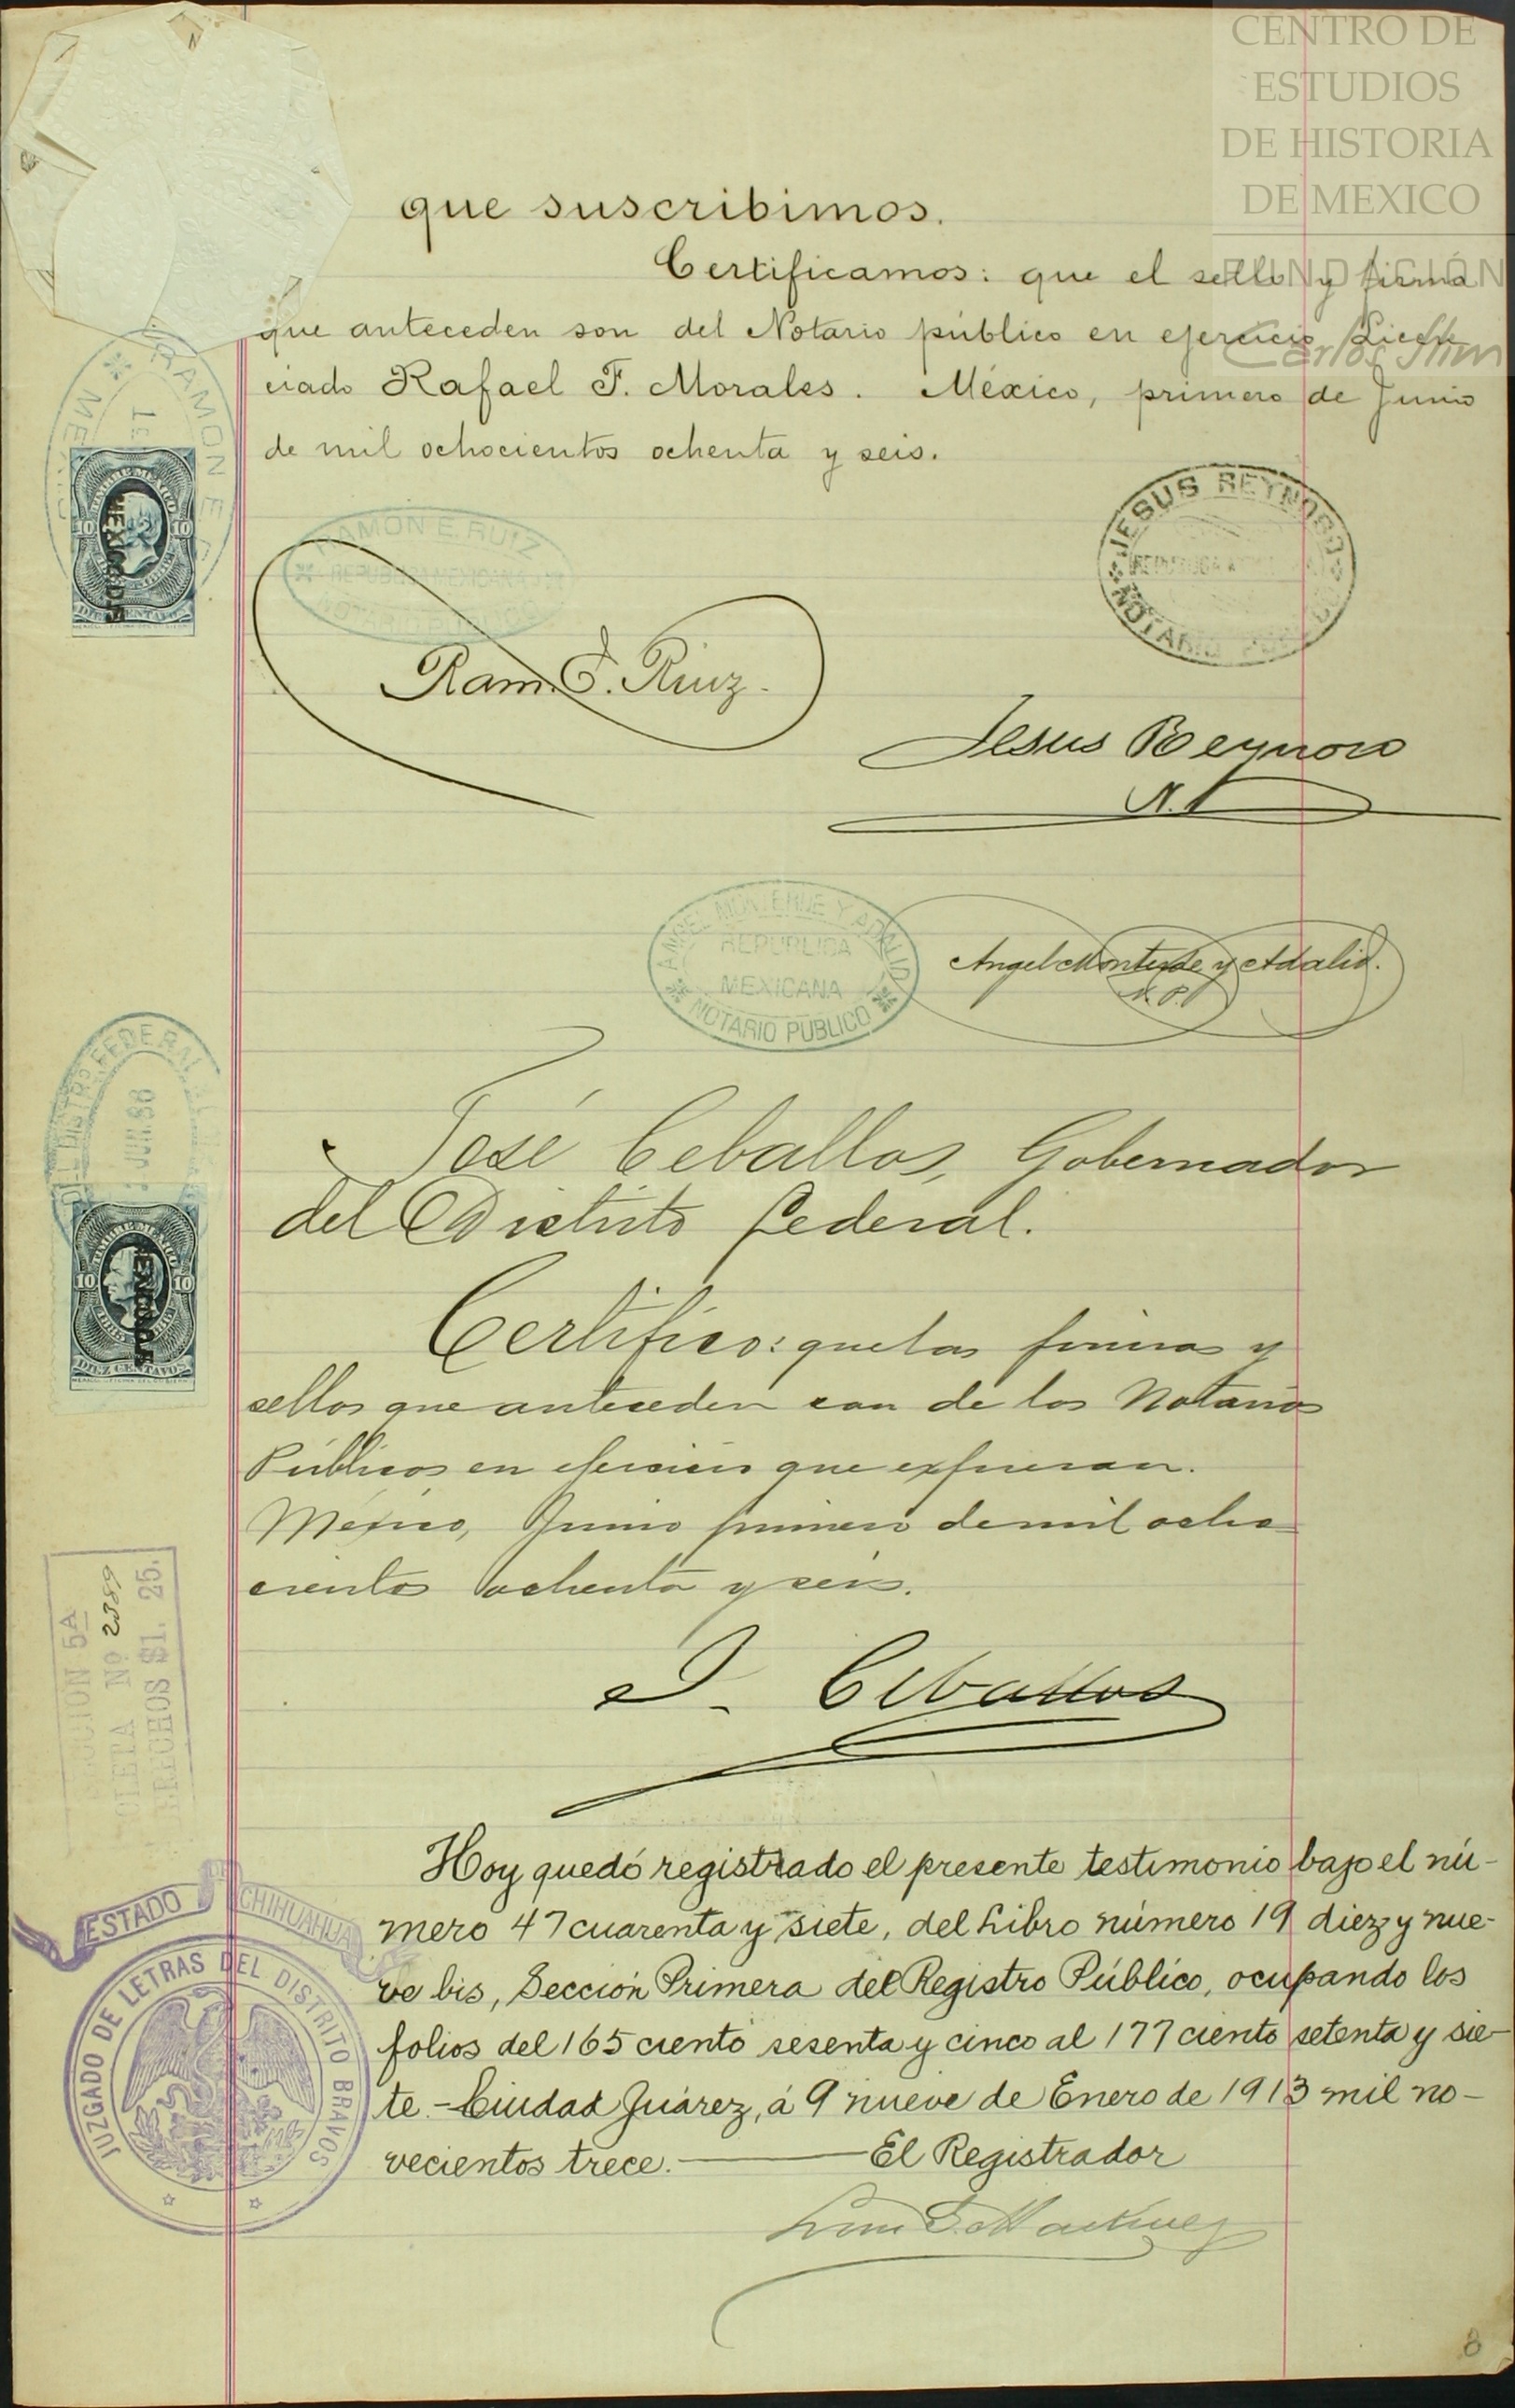 CENTRO DE
ESTUDIOS
DE HISTORIA
DE MEXICO
FUNDACIÓN
Carlos Slim
que suscribimos.
Certificamos: que el sello y firma
que anteceden son del Notario público en ejercicio Licen
ciado Rafael F. Morales. México, primero de Junio
de mil ochocientos ochenta y seis.
RAMON E.
MEXICO
TIMBRE MEXICO
10 10
MEXICO D.F.
DIEZ CENTAVOS
RAMON E. RUIZ
REPUBLICA MEXICANA
NOTARIO
JESUS REYNOSO
REPUBLICA
NOTARIO PUBLICO
Ram. E. Ruiz.
Jesus Reynoso
N.
ANGEL MONTERDE Y ADALID
REPUBLICA
MEXICANA
NOTARIO PUBLICO
Angel Monterde y Adalid.
N. P.
DISTRO FEDERAL
JUN. 86
José Ceballos, Gobernador
del Distrito federal.
TIMBRE MEXICO
10 10
MEXICO D.F.
1885 1886
DIEZ CENTAVOS
Certifico: que las firmas y
sellos que anteceden son de los Notarios
Públicos en ejercicio que expresan.
México, Junio primero de mil ocho
cientos ochenta y seis.
SECCION 5A
BOLETA Nº 2389
DERECHOS $1. 25.
J. Ceballos
Hoy quedó registrado el presente testimonio bajo el nú-
mero 47 cuarenta y siete, del Libro número 19 diez y nue-
ve bis, Sección Primera del Registro Público, ocupando los
folios del 165 ciento sesenta y cinco al 177 ciento setenta y sie-
te.- Ciudad Juárez, á 9 nueve de Enero de 1913 mil no-
vecientos trece. — El Registrador
ESTADO DE CHIHUAHUA
JUZGADO DE LETRAS DEL DISTRITO BRAVOS
Martinez
8